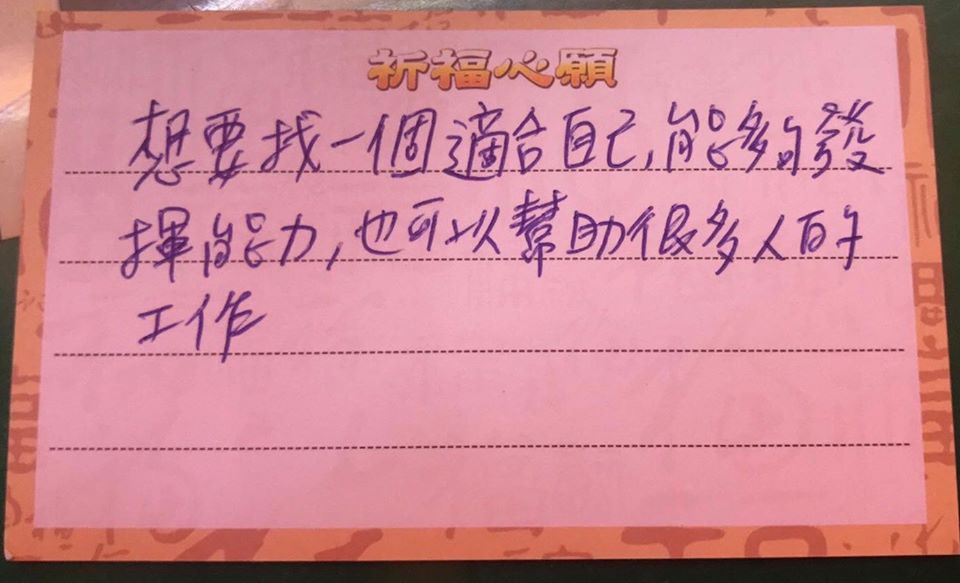 祈福心願
想要找一個適合自己,能夠發
揮能力,也可以幫助很多人的
工作